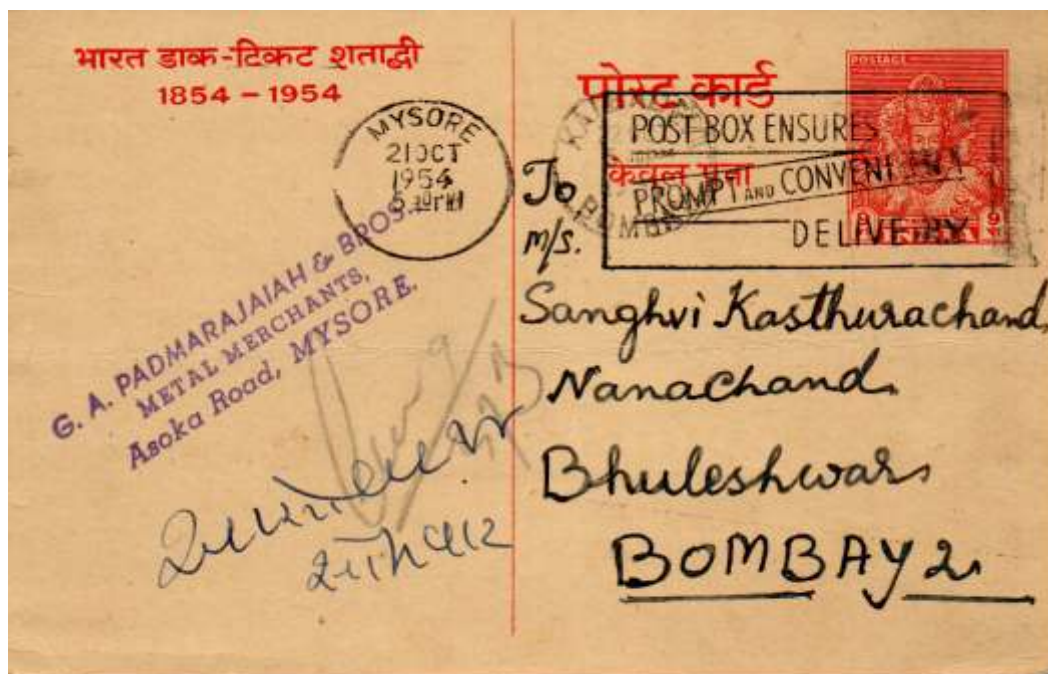 भारत डाक-टिकट शताब्दी
1854 – 1954
MYSORE
21 OCT
1954
G. A. PADMARAJAIAH & BROS.,
METAL MERCHANTS,
Asoka Road, MYSORE.
पोस्ट कार्ड
केवल पता
POSTAGE
POST BOX ENSURES
PROMPT AND CONVENIENT
DELIVERY
BOMBAY
To
M/S.
Sanghvi Kasthurachand
Nanachand
Bhuleshwar
BOMBAY 2.